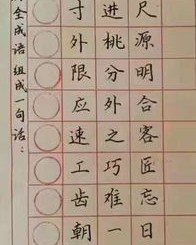 全成语 组成一句话：
寸进尺
外桃源
限分明
应外合
速之客
工巧匠
齿难忘
朝一日